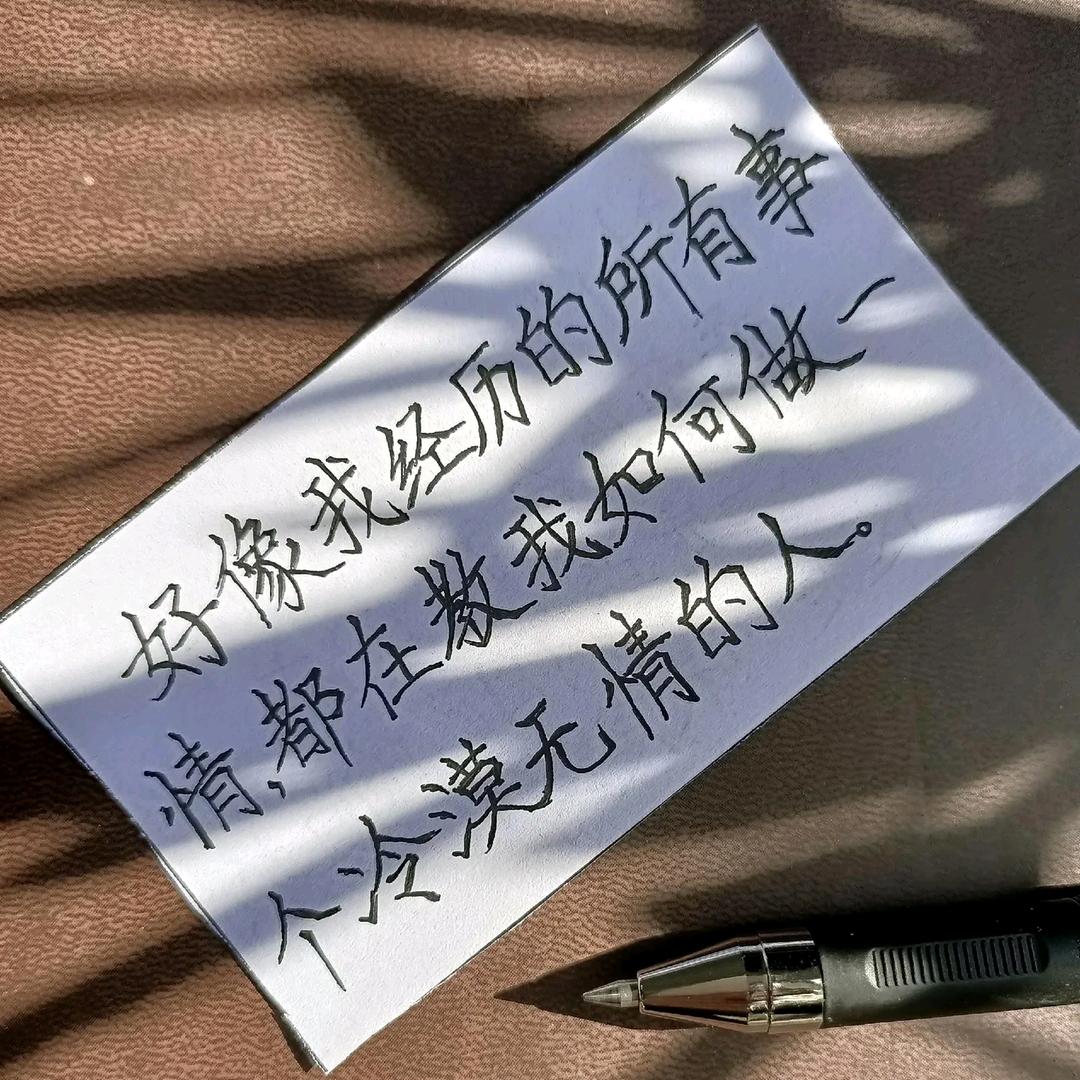 好像我经历的所有事
情,都在教我如何做一
个冷漠无情的人。